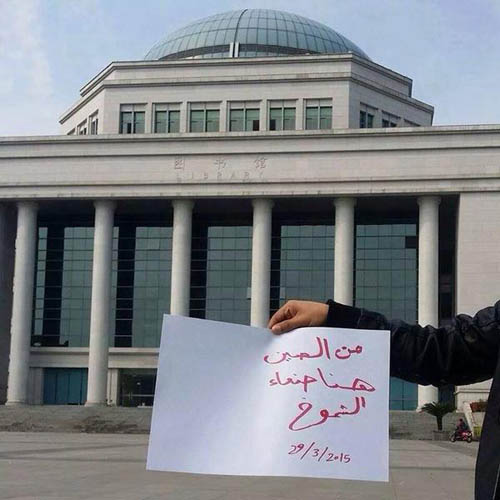 图书馆
LIBRARY
من الصين
هنا صنعاء
الشموخ
29/3/2015